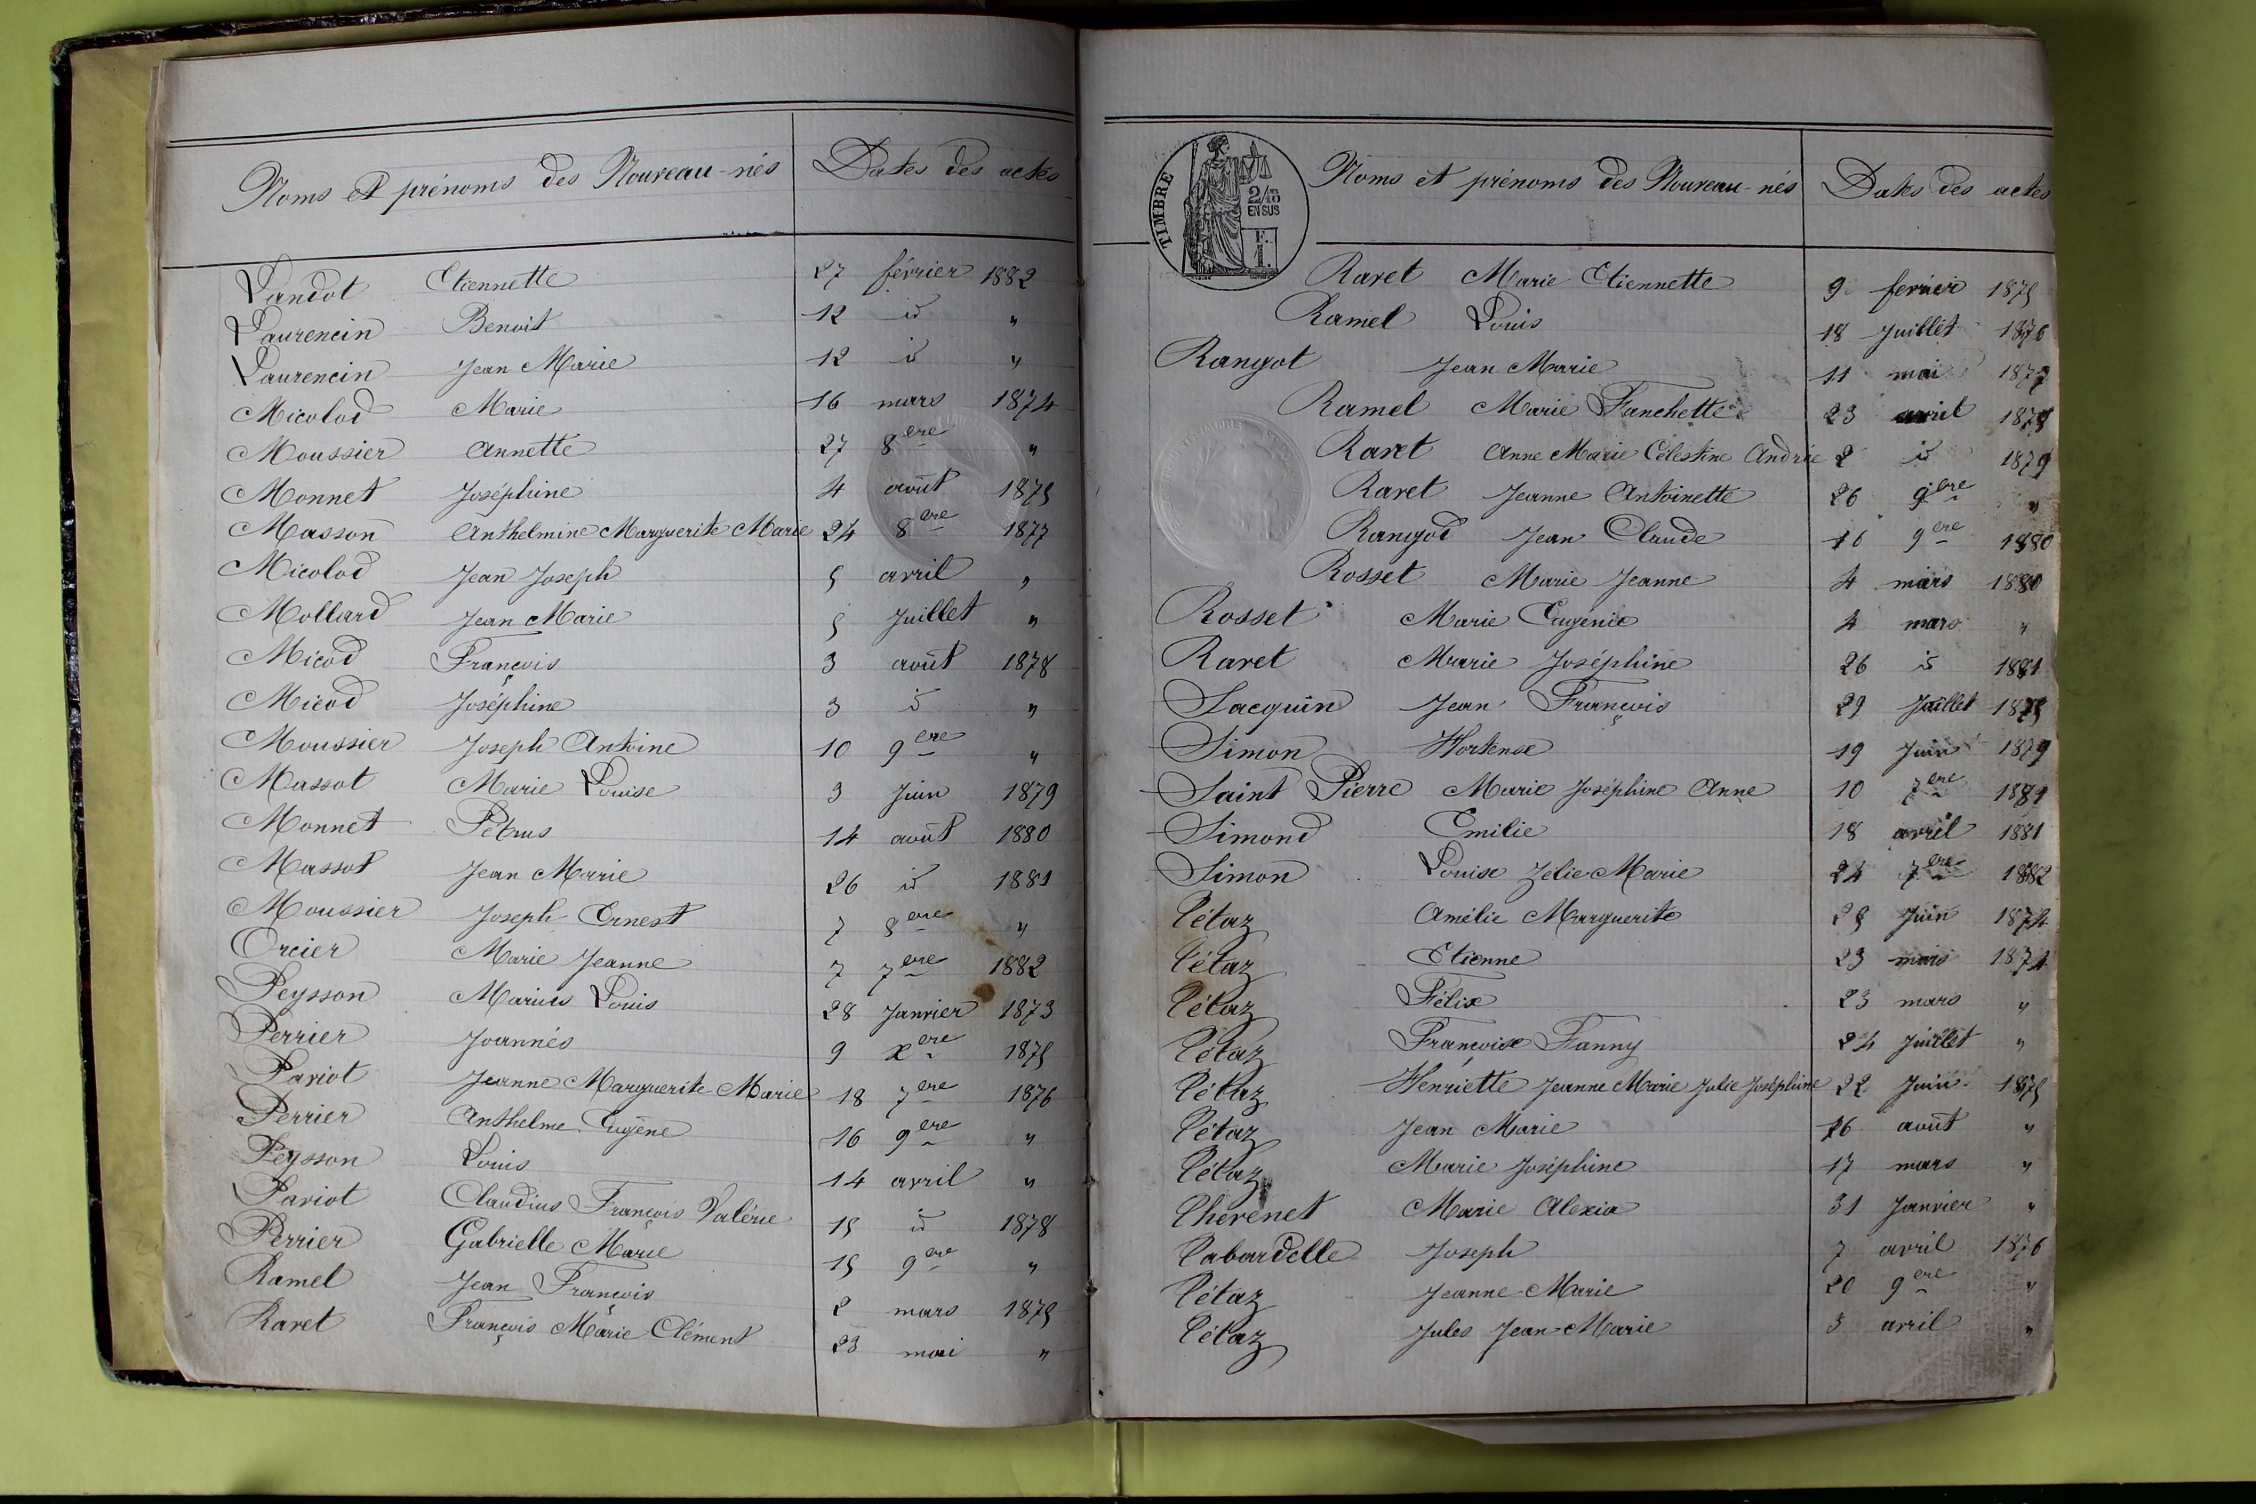 Noms et prénoms des Nouveau-nés Dates des actes
Landot Etiennette 27 février 1882
Laurencin Benoit 12 id "
Laurencin Jean Marie 12 id "
Micolod Marie 16 mars 1874
Moussier Annette 27 8ere "
Monnet Joséphine 4 août 1875
Masson Anthelmine Marguerite Marie 24 8ere 1877
Micolod Jean Joseph 5 avril "
Mollard Jean Marie 5 Juillet "
Micod François 3 août 1878
Micod Joséphine 3 id "
Moussier Joseph Antoine 10 9ere "
Massot Marie Louise 3 Juin 1879
Monnet Pétrus 14 août 1880
Massot Jean Marie 26 id 1881
Moussier Joseph Ernest 7 8ere "
Orcier Marie Jeanne 7 7ere 1882
Peysson Marius Louis 28 Janvier 1873
Perrier Joannés 9 xere 1875
Pariot Jeanne Marguerite Marie 18 7ere 1876
Perrier Anthelme Eugène 16 9ere "
Peysson Louis 14 avril "
Pariot Claudius François Valérie 15 id 1878
Perrier Gabrielle Marie 15 9ere "
Ramel Jean François 2 mars 1875
Raret François Marie Clément 23 mai "
TIMBRE
2/10
EN SUS
F.
1.
Noms et prénoms des Nouveau-nés Dates des actes
Raret Marie Etiennette 9 ferier 1875
Ramel Louis 18 Juillet 1876
Rangot Jean Marie 11 mai 1877
Ramel Marie Fanchette 23 avril 1878
Raret Anne Marie Célestine Andrée 2 id 1879
Raret Jeanne Antoinette 26 9ere "
Rangod Jean Claude 16 9ere 1880
Rosset Marie Jeanne 4 mars 1880
Rosset Marie Eugénie 4 mars "
Raret Marie Joséphine 26 id 1881
Sacquin Jean François 29 Juillet 1875
Simon Hortense 19 Juin 1879
Saint Pierre Marie Joséphine Anne 10 7ere 1881
Simond Emilie 18 avril 1881
Simon Louise Zélie Marie 24 7ere 1882
Tétaz Amélie Marguerite 25 Juin 1874
Tétaz Etienne 23 mars 1874
Tétaz Félix 23 mars "
Tétaz Françoise Fanny 24 Juillet "
Tétaz Henriette Jeanne Marie Julie Joséphine 22 Juin 1875
Tétaz Jean Marie 16 août "
Tétaz Marie Joséphine 17 mars "
Thévenet Marie Alexia 31 Janvier "
Tabardelle Joseph 7 avril 1876
Tétaz Jeanne Marie 20 9ere "
Tétaz Jules Jean Marie 3 avril "